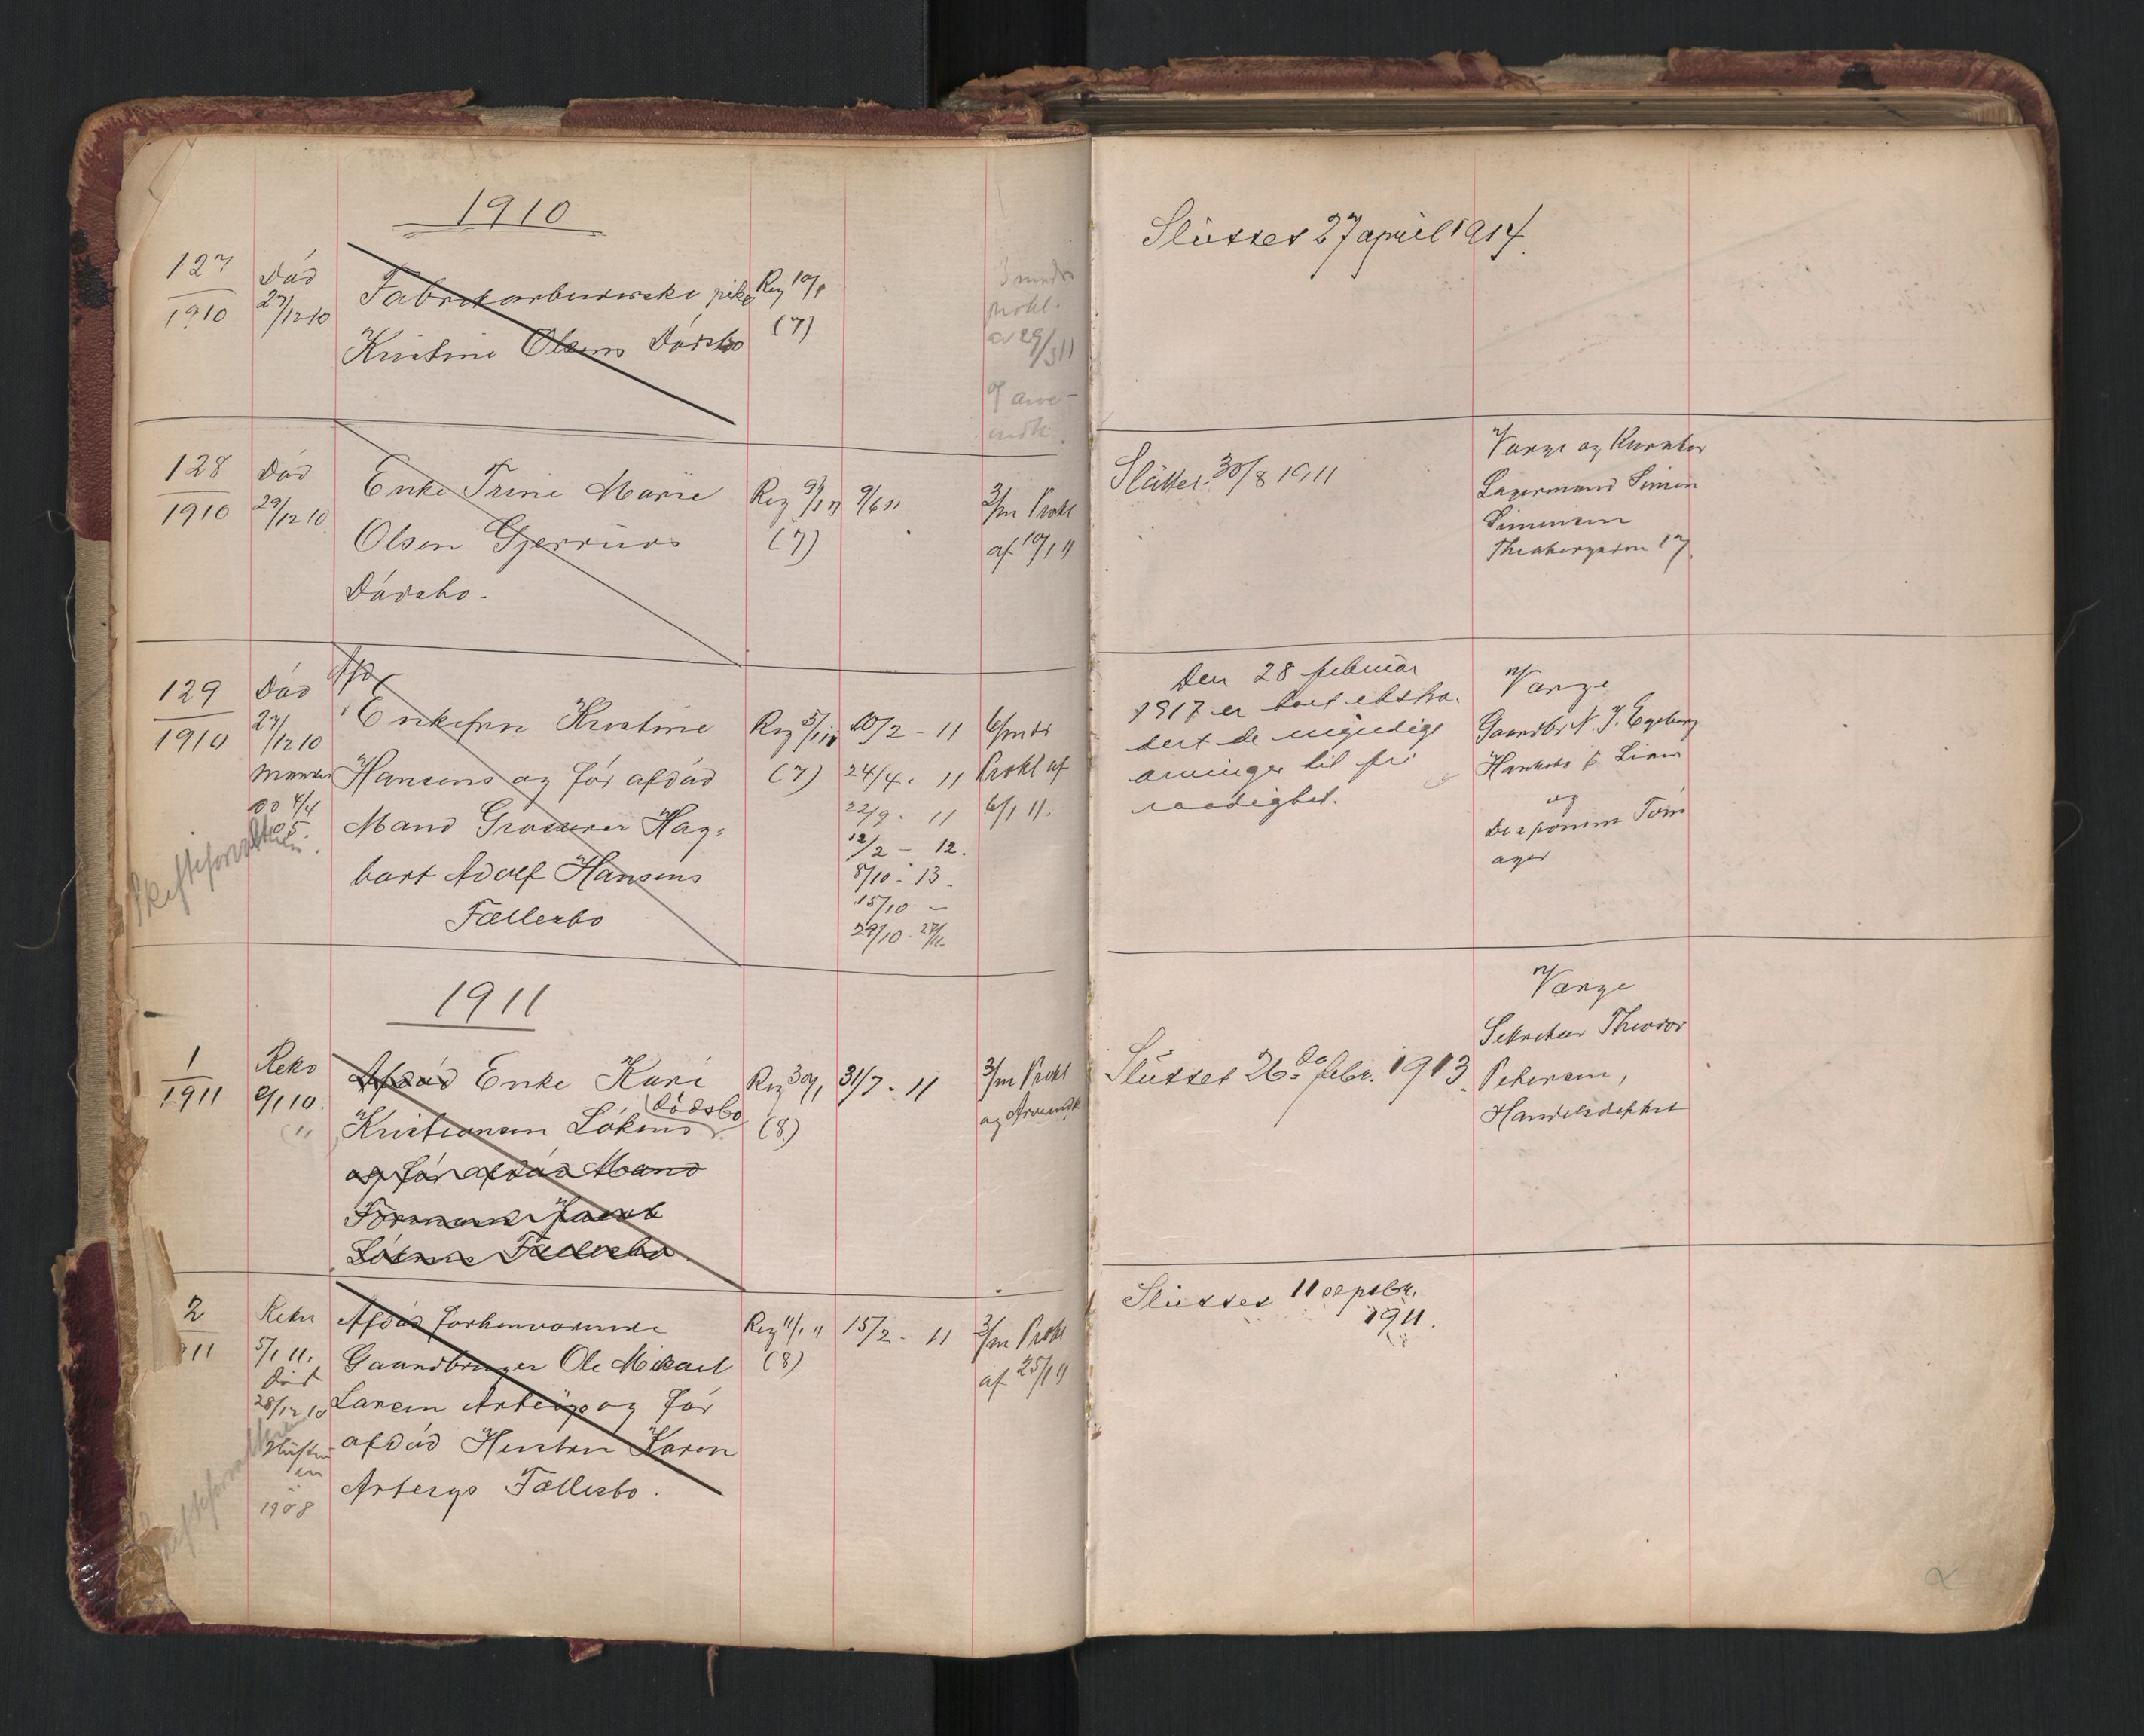 1910
127
1910
Död
27/12 10
Fabrikarbeiderske pike
Kristine Olsens Dödsbo
Reg 10/1
(7)
3 mndrs
prokl.
av 29/3 11
og arve-
indk.
Sluttet 27 april 1914
128
1910
Död
29/12 10
Enke Trine Marie
Olsen Gjerruds
Dödsbo.
Reg 9/1 11
(7)
9/6 11
3/m Prokl
af 10/1 11
Sluttet 30/8 1911
Værge og Kurator
Lagermand Simen
Simensen
Theatergaden 17
129
1910
Död
27/12 10
Manden
död 4/4
05.
Skifteforvalteren
Afd.
Enkefru Kristine
Hansens og før afdöd
Mand Grosserer Hag-
bart Adolf Hansens
Fællesbo
Reg 5/1 11
(7)
10/2 - 11
24/4 - 11
22/9 - 11
12/2 - 12.
8/10 - 13.
15/10 -
29/10 - 27/11
6/mdr
Prokl af
6/1 11.
Den 28 februar
1917 er boet ekstra-
dert de myndige
arvinger til fri
raadighet.
Værge
Gaardbr N. J. Egeberg
og
Disponent Tom
ager
1911
1
1911
Rekv
2/1 10.
11
Afdöd Enke Kari
Kristiansen Løkens dødsbo
og før afdöd Mand
Formand Jacob
Løkens Fællesbo
Reg 30/1
(8)
31/7 - 11
3/m Prokl
og Arveindk
Sluttet 26de febr. 1913.
Værge
Sekretær Theodor
Petersen,
Handelsdepket
2
1911
Rekv
5/1 11.
Död
28/12 10
Hustru
en
1908
Skifteforvalteren
Afdöd forhenværende
Gaardbruger Ole Mikael
Larsen Arteigs og før
afdöd Hustru Karen
Artergs Fællesbo.
Reg 11/1 11
(8)
15/2 - 11
3/m Prokl
af 25/1 11
Sluttet 11 septbr.
1911.